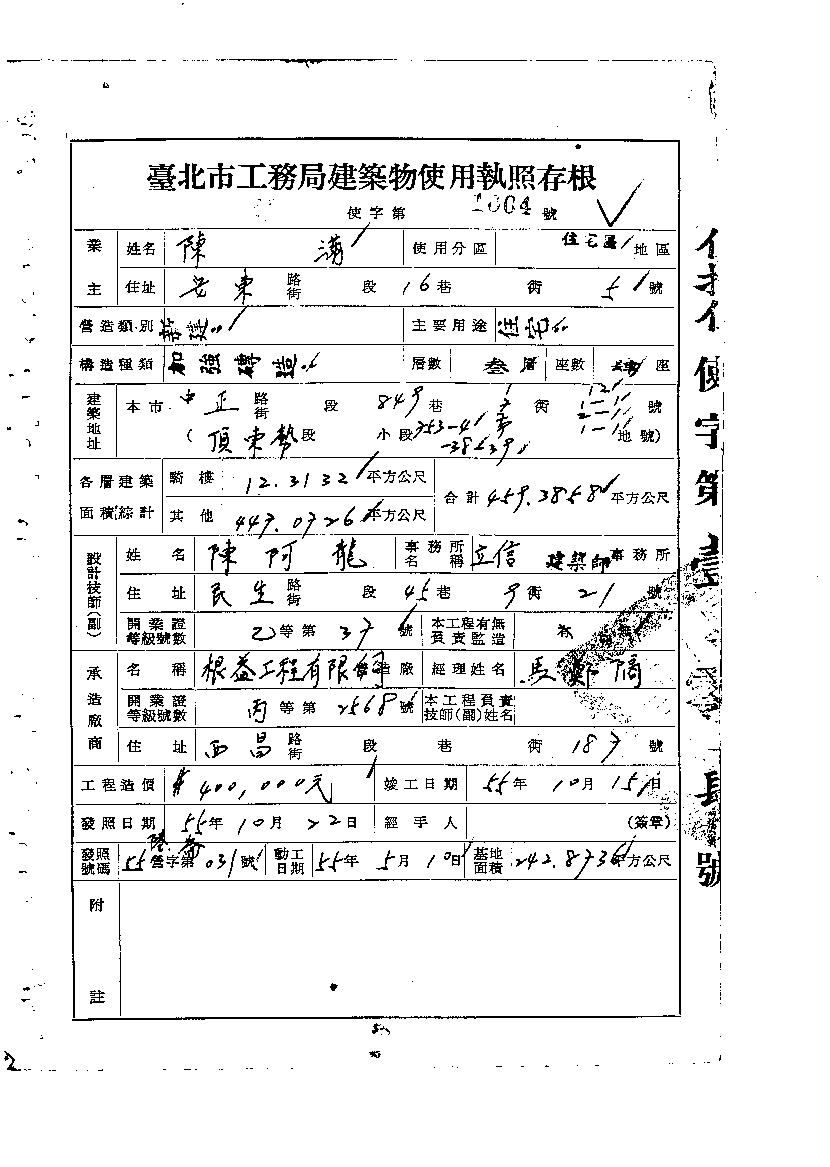 臺北市工務局建築物使用執照存根
使字第 1004 號
業主 姓名 陳 滿 使用分區 住宅區 地區
住址 安東 路街 段 16巷 衖 51 號
營造類別 新建 主要用途 住宅
構造種類 加強磚造 層數 叁層 座數 座
建築地址 本市 中正 路街 段 849巷 衖 號
(頂東勢段 小段 353-4 地號)
各層建築面積綜計 騎樓 12.3132 平方公尺 合計 459.3858 平方公尺
其他 447.0726 平方公尺
設計技師(副) 姓名 陳阿龍 事務所名稱 立信 建築師事務所
住址 民生 路街 段 45巷 弄衖 21 號
開業證等級號數 乙等第 37 號 本工程有無負責監造
承造廠商 名稱 根益工程有限 造廠 經理姓名 馬
開業證等級號數 丙等第 2568 號 本工程負責技師(副)姓名
住址 西昌 路街 段 巷 衖 187 號
工程造價 $400,000元 竣工日期 55年10月15日
發照日期 55年10月22日 經手人 (簽章)
發照號碼 55營字第031號 動工日期 55年5月10日 基地面積 242.8736平方公尺
附註
使字第壹
號